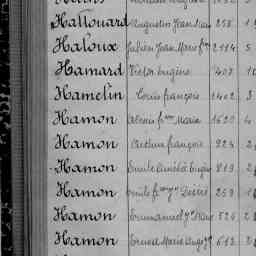 Hallouard Augustin Jean Marie 258
Haloux Julien Jean Marie 2114 5
Hamard Victor Eugène 407 10
Hamelin Louis françois 1402 3
Hamon Alexis Marie 1620 4
Hamon Arthur françois 924 2
Hamon Emile Eugène 219 2
Hamon Emile Désiré 259 1
Hamon Emmanuel Marie 524 2
Hamon Ernest Marie 613 2